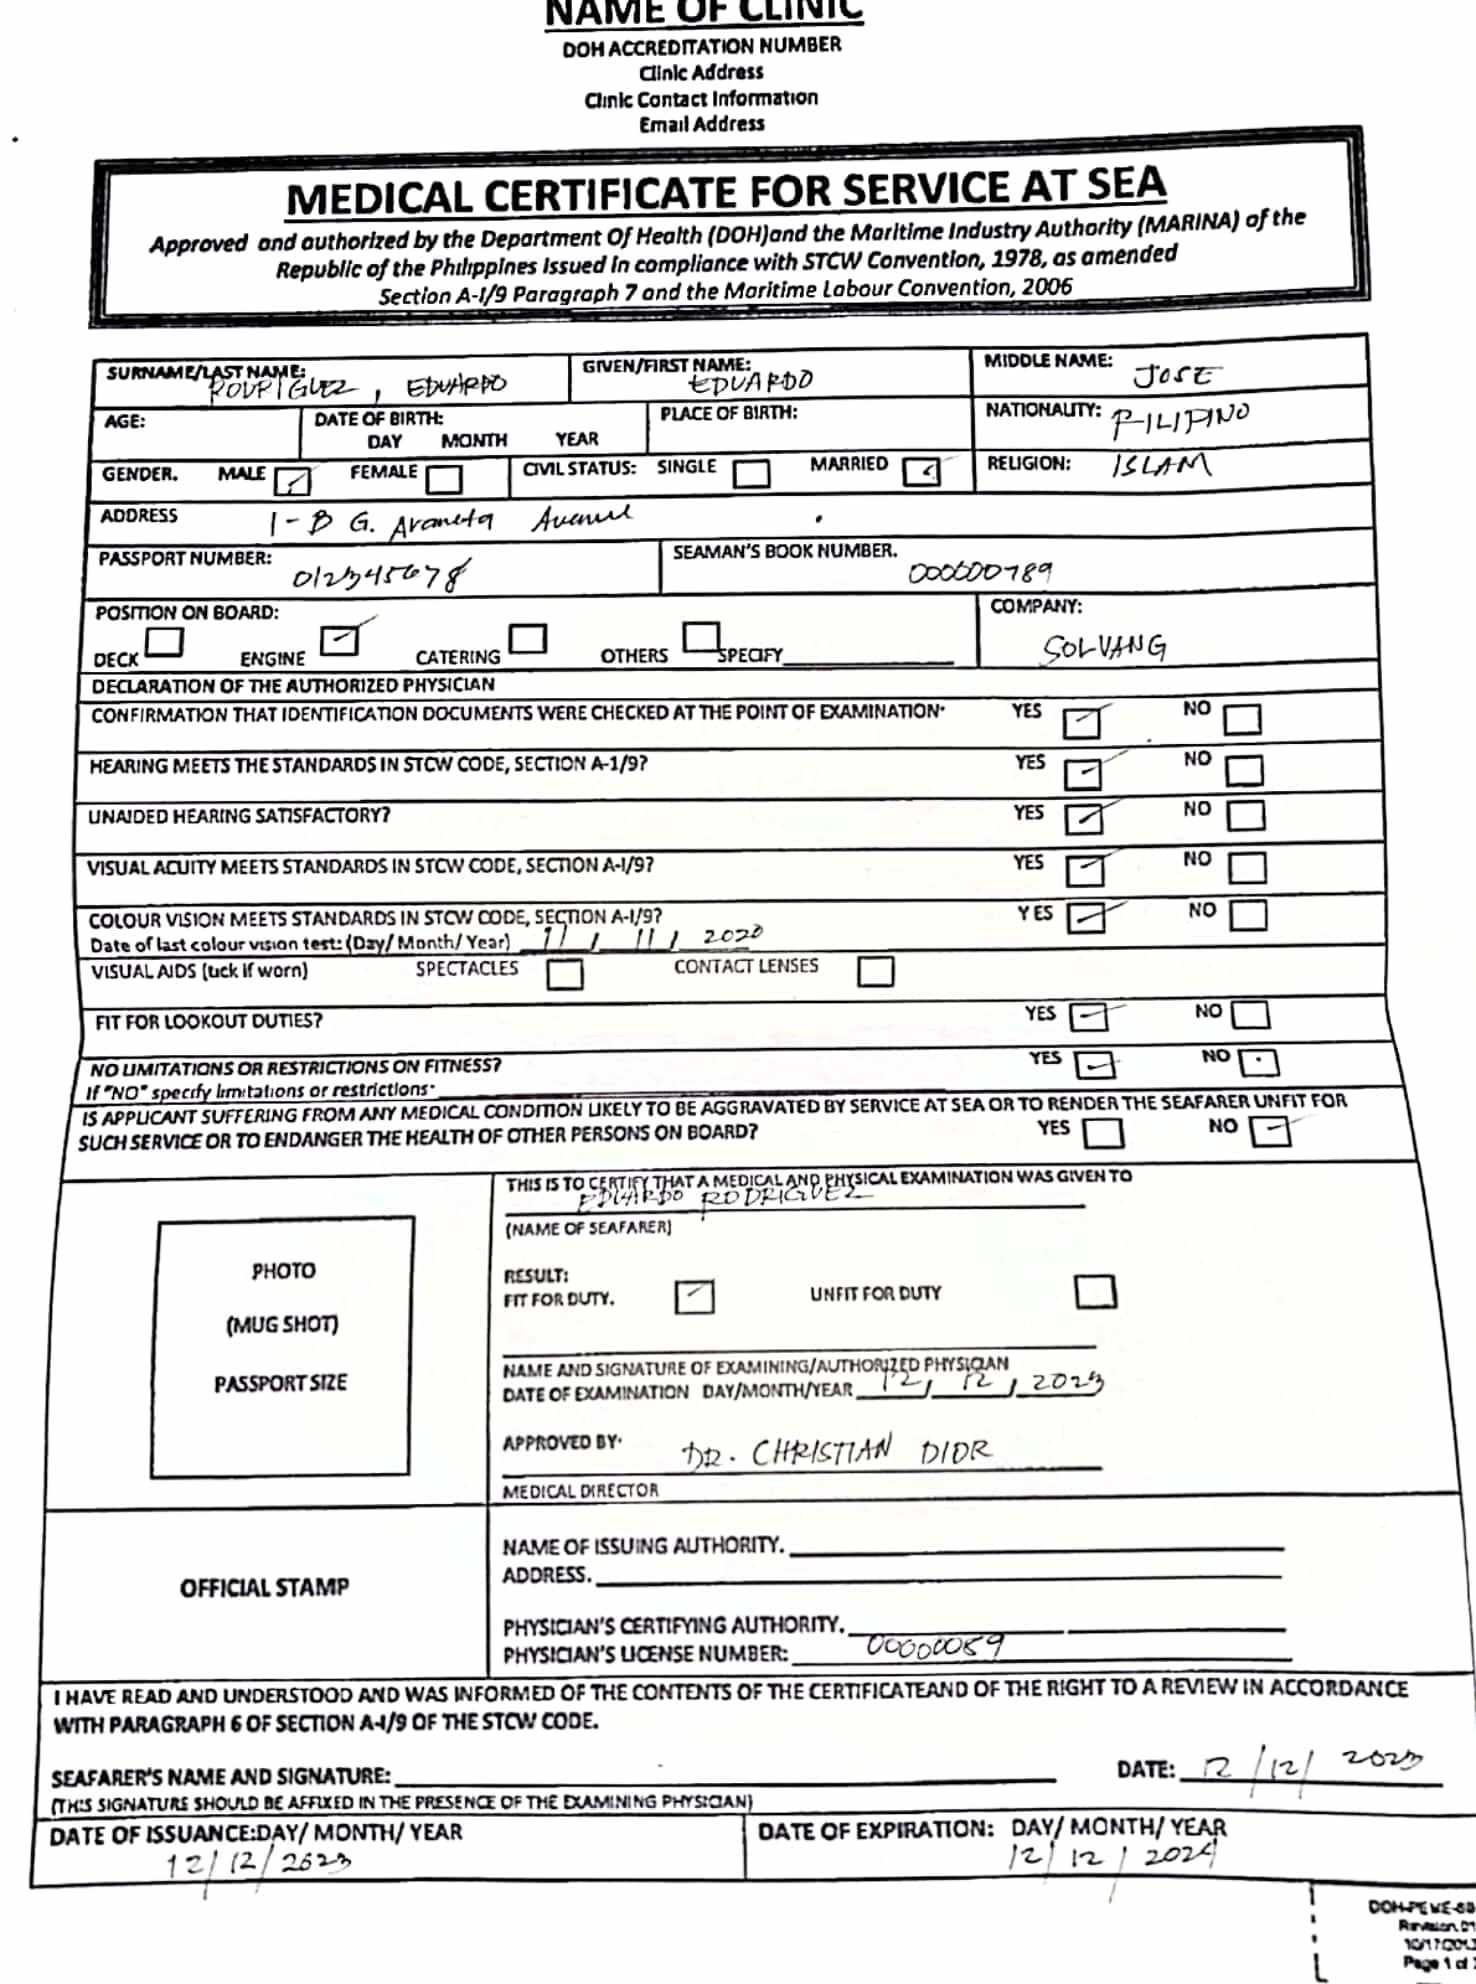 NAME OF CLINIC
DOH ACCREDITATION NUMBER
Clinic Address
Clinic Contact Information
Email Address
MEDICAL CERTIFICATE FOR SERVICE AT SEA
Approved and authorized by the Department Of Health (DOH)and the Maritime Industry Authority (MARINA) of the
Republic of the Philippines Issued in compliance with STCW Convention, 1978, as amended
Section A-I/9 Paragraph 7 and the Maritime Labour Convention, 2006
SURNAME/LAST NAME: GIVEN/FIRST NAME: MIDDLE NAME:
RODRIGUEZ, EDUARDO EDUARDO JOSE
AGE: DATE OF BIRTH: PLACE OF BIRTH: NATIONALITY: FILIPINO
DAY MONTH YEAR
GENDER. MALE FEMALE CIVIL STATUS: SINGLE MARRIED RELIGION: ISLAM
ADDRESS 1-B G. Araneta Avenue
PASSPORT NUMBER: 012345678 SEAMAN'S BOOK NUMBER. 000000789
POSITION ON BOARD: COMPANY:
DECK ENGINE CATERING OTHERS SPECIFY SOLVANG
DECLARATION OF THE AUTHORIZED PHYSICIAN
CONFIRMATION THAT IDENTIFICATION DOCUMENTS WERE CHECKED AT THE POINT OF EXAMINATION: YES NO
HEARING MEETS THE STANDARDS IN STCW CODE, SECTION A-1/9? YES NO
UNAIDED HEARING SATISFACTORY? YES NO
VISUAL ACUITY MEETS STANDARDS IN STCW CODE, SECTION A-I/9? YES NO
COLOUR VISION MEETS STANDARDS IN STCW CODE, SECTION A-I/9? YES NO
Date of last colour vision test: (Day/ Month/ Year) 11 / 11 / 2020
VISUAL AIDS (tick if worn) SPECTACLES CONTACT LENSES
FIT FOR LOOKOUT DUTIES? YES NO
NO LIMITATIONS OR RESTRICTIONS ON FITNESS? YES NO
If "NO" specify limitations or restrictions:
IS APPLICANT SUFFERING FROM ANY MEDICAL CONDITION LIKELY TO BE AGGRAVATED BY SERVICE AT SEA OR TO RENDER THE SEAFARER UNFIT FOR
SUCH SERVICE OR TO ENDANGER THE HEALTH OF OTHER PERSONS ON BOARD? YES NO
THIS IS TO CERTIFY THAT A MEDICAL AND PHYSICAL EXAMINATION WAS GIVEN TO
EDUARDO RODRIGUEZ
(NAME OF SEAFARER)
PHOTO
(MUG SHOT)
PASSPORT SIZE
RESULT:
FIT FOR DUTY. UNFIT FOR DUTY
NAME AND SIGNATURE OF EXAMINING/AUTHORIZED PHYSICIAN
DATE OF EXAMINATION DAY/MONTH/YEAR 12 / 12 / 2023
APPROVED BY: DR. CHRISTIAN DIOR
MEDICAL DIRECTOR
OFFICIAL STAMP
NAME OF ISSUING AUTHORITY.
ADDRESS.
PHYSICIAN'S CERTIFYING AUTHORITY.
PHYSICIAN'S LICENSE NUMBER: 00000059
I HAVE READ AND UNDERSTOOD AND WAS INFORMED OF THE CONTENTS OF THE CERTIFICATEAND OF THE RIGHT TO A REVIEW IN ACCORDANCE
WITH PARAGRAPH 6 OF SECTION A-I/9 OF THE STCW CODE.
SEAFARER'S NAME AND SIGNATURE: DATE: 12 /12/ 2023
(THIS SIGNATURE SHOULD BE AFFIXED IN THE PRESENCE OF THE EXAMINING PHYSICIAN)
DATE OF ISSUANCE:DAY/ MONTH/ YEAR DATE OF EXPIRATION: DAY/ MONTH/ YEAR
12/12/2023 12/ 12 / 2024
Revision 01
Page 1 of